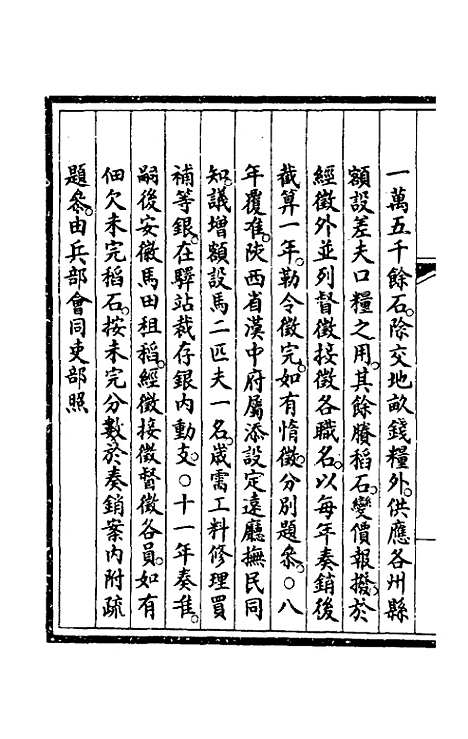 一萬五千餘石。除交地畝錢糧外。供應各州縣
額設差夫口糧之用。其餘賸稻石。變價報撥。於
經徵外並列督徵接徵各職名。以每年奏銷後
截算一年。勒令徵完。如有惰徵。分別題叅。○八
年覆准。陝西省漢中府屬添設定遠廳撫民同
知。議增額設馬二匹夫一名。歲需工料修理買
補等銀。在驛站裁存銀內動支。○十一年奏准。
嗣後安徽馬田租稻。經徵接徵督徵各員。如有
佃欠未完稻石。按未完分數於奏銷案內附疏
題叅。由兵部會同吏部照